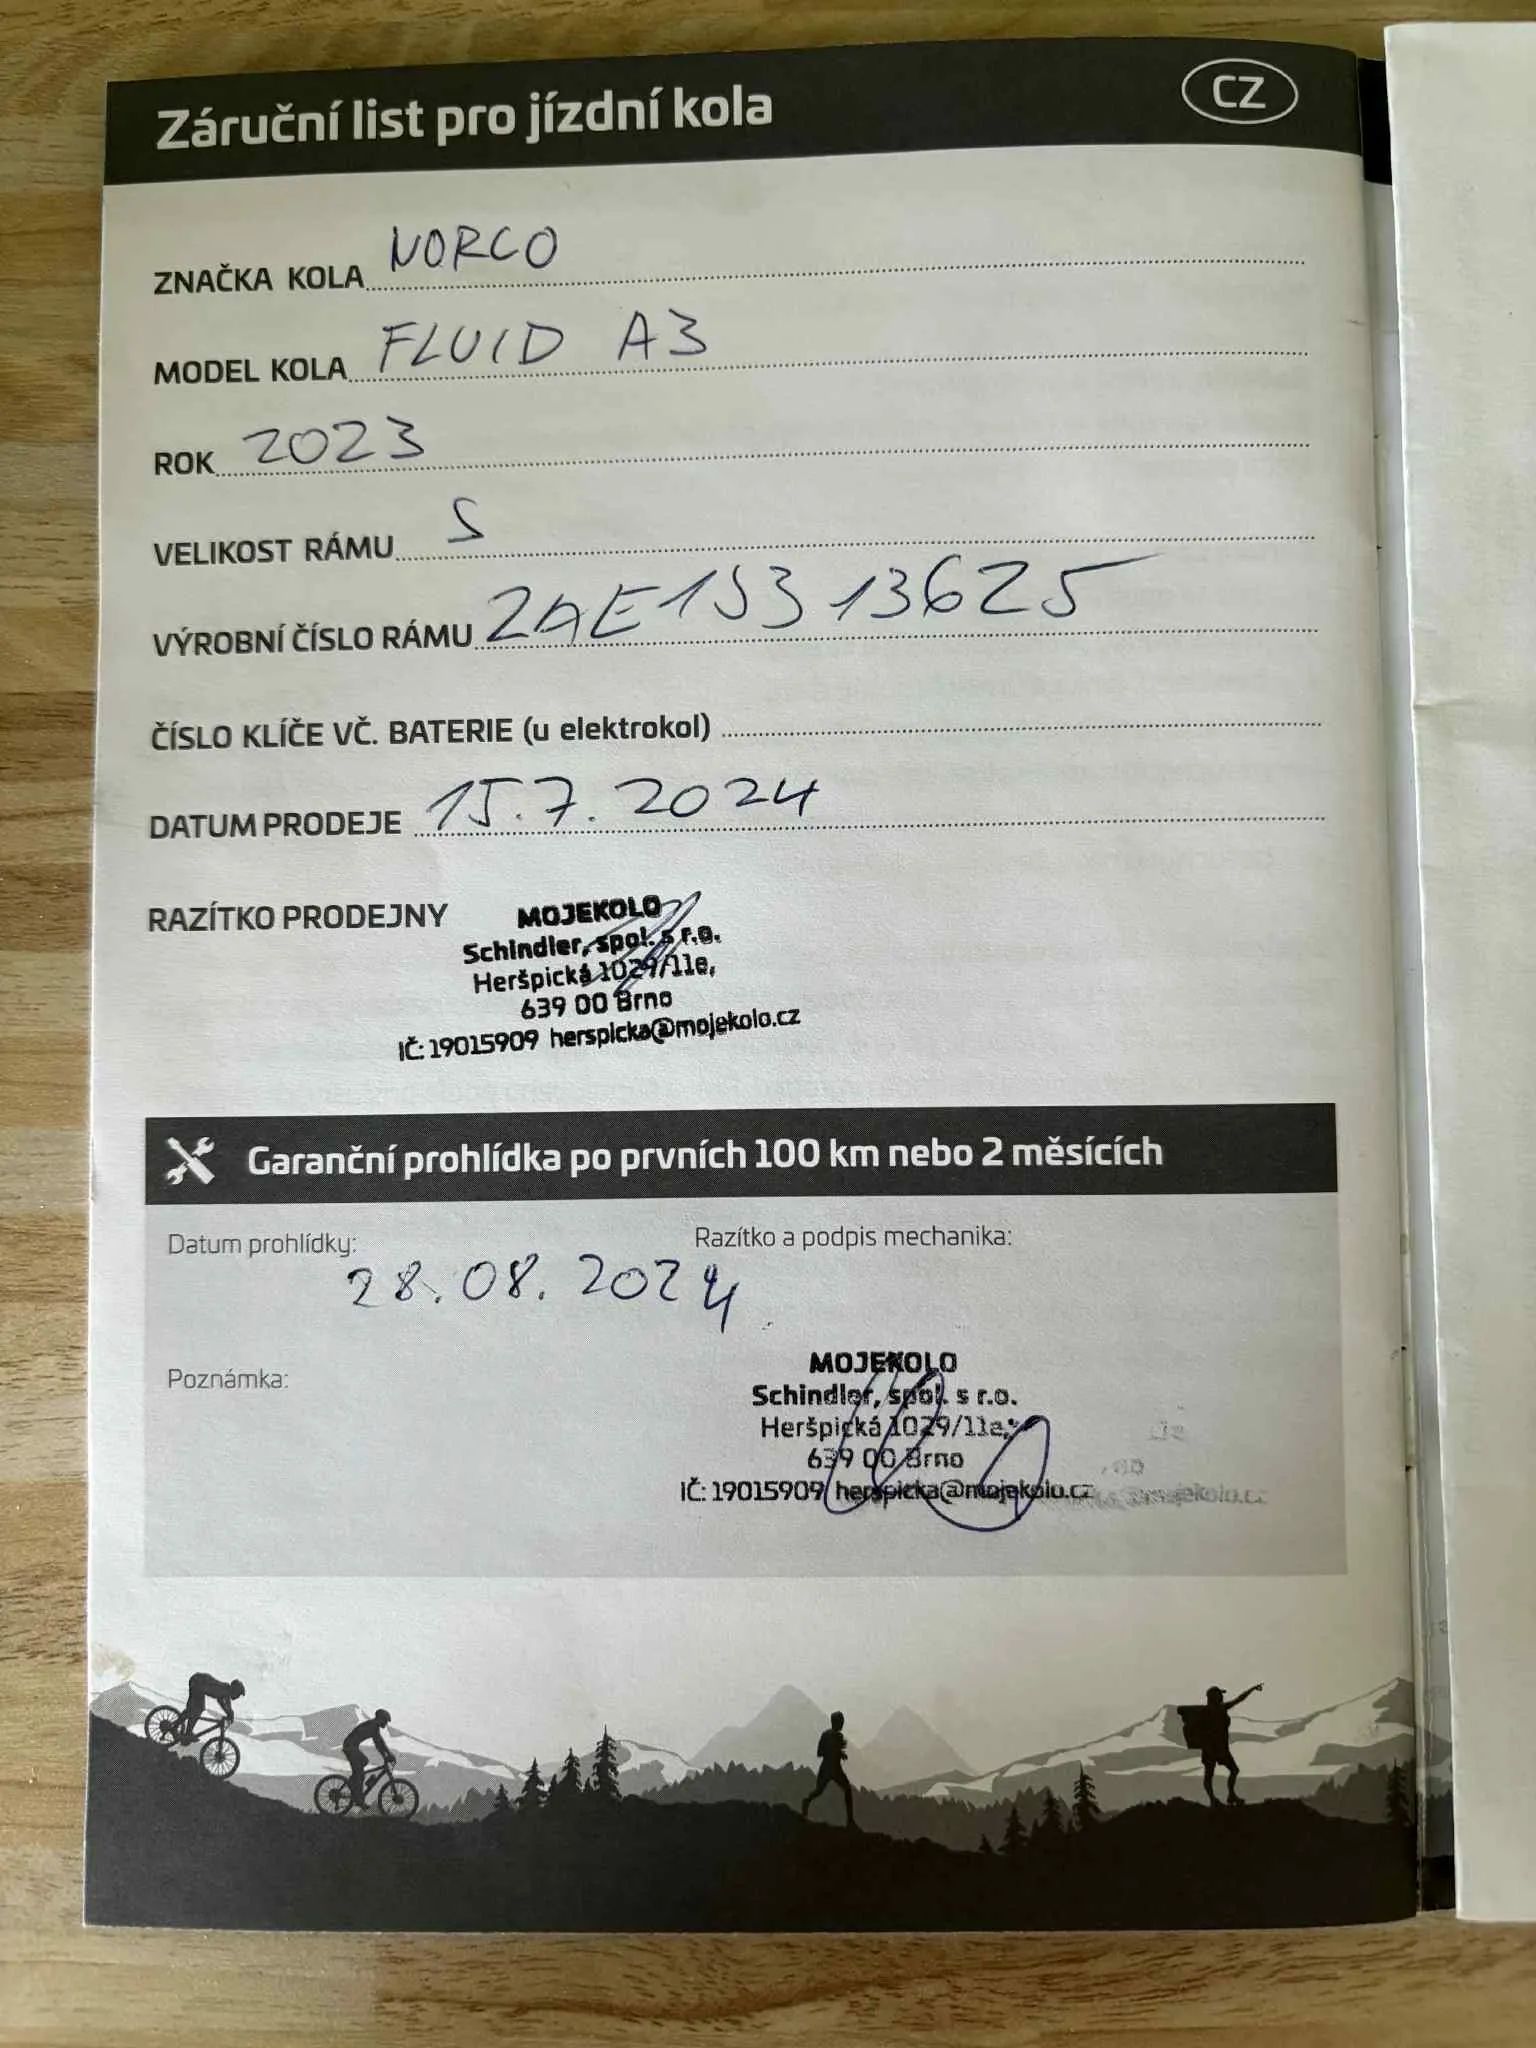 Záruční list pro jízdní kola
CZ
ZNAČKA KOLA NORCO
MODEL KOLA FLUID A3
ROK 2023
VELIKOST RÁMU S
VÝROBNÍ ČÍSLO RÁMU
ČÍSLO KLÍČE VČ. BATERIE (u elektrokol)
DATUM PRODEJE 15.7.2024
RAZÍTKO PRODEJNY
MOJEKOLO
Schindler, spol. s r.o.
Heršpická 1029/11e,
639 00 Brno
IČ: 19015909 herspicka@mojekolo.cz
Garanční prohlídka po prvních 100 km nebo 2 měsících
Datum prohlídky: 28.08.2024
Razítko a podpis mechanika:
Poznámka:
MOJEKOLO
Schindler, spol. s r.o.
Heršpická 1029/11e,
639 00 Brno
IČ: 19015909 herspicka@mojekolo.cz